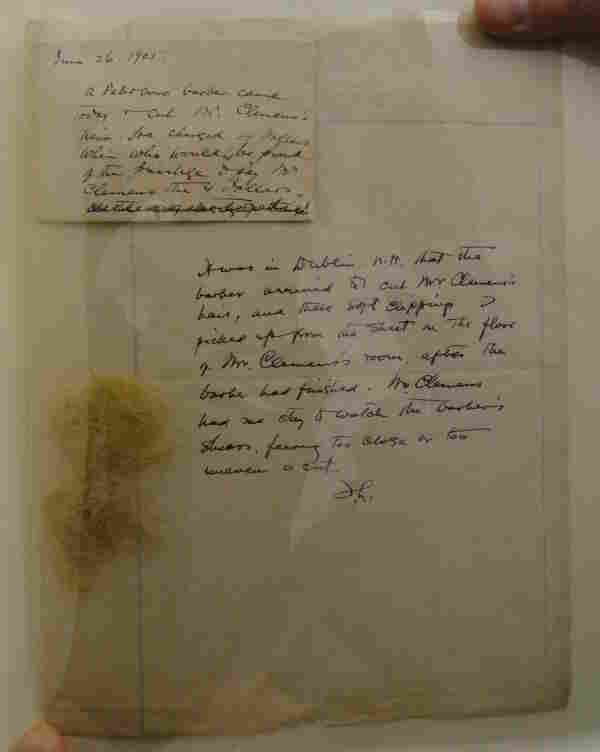 June 26 1905.
a Peterboro barber came
today & cut Mr. Clemens's
hair. he charged 4 Dollars
when who would be proud
of the privilege to pay Mr
Clemens the 4 Dollars.
It was in Dublin, N.H. that the
barber arrived to cut Mr Clemens's
hair, and these soft clippings I
picked up from the sheet on the floor
of Mr. Clemens's room, after the
barber had finished. Mr. Clemens
had me stay to watch the barber's
shears, fearing too close or too
uneven a cut.
I.L.